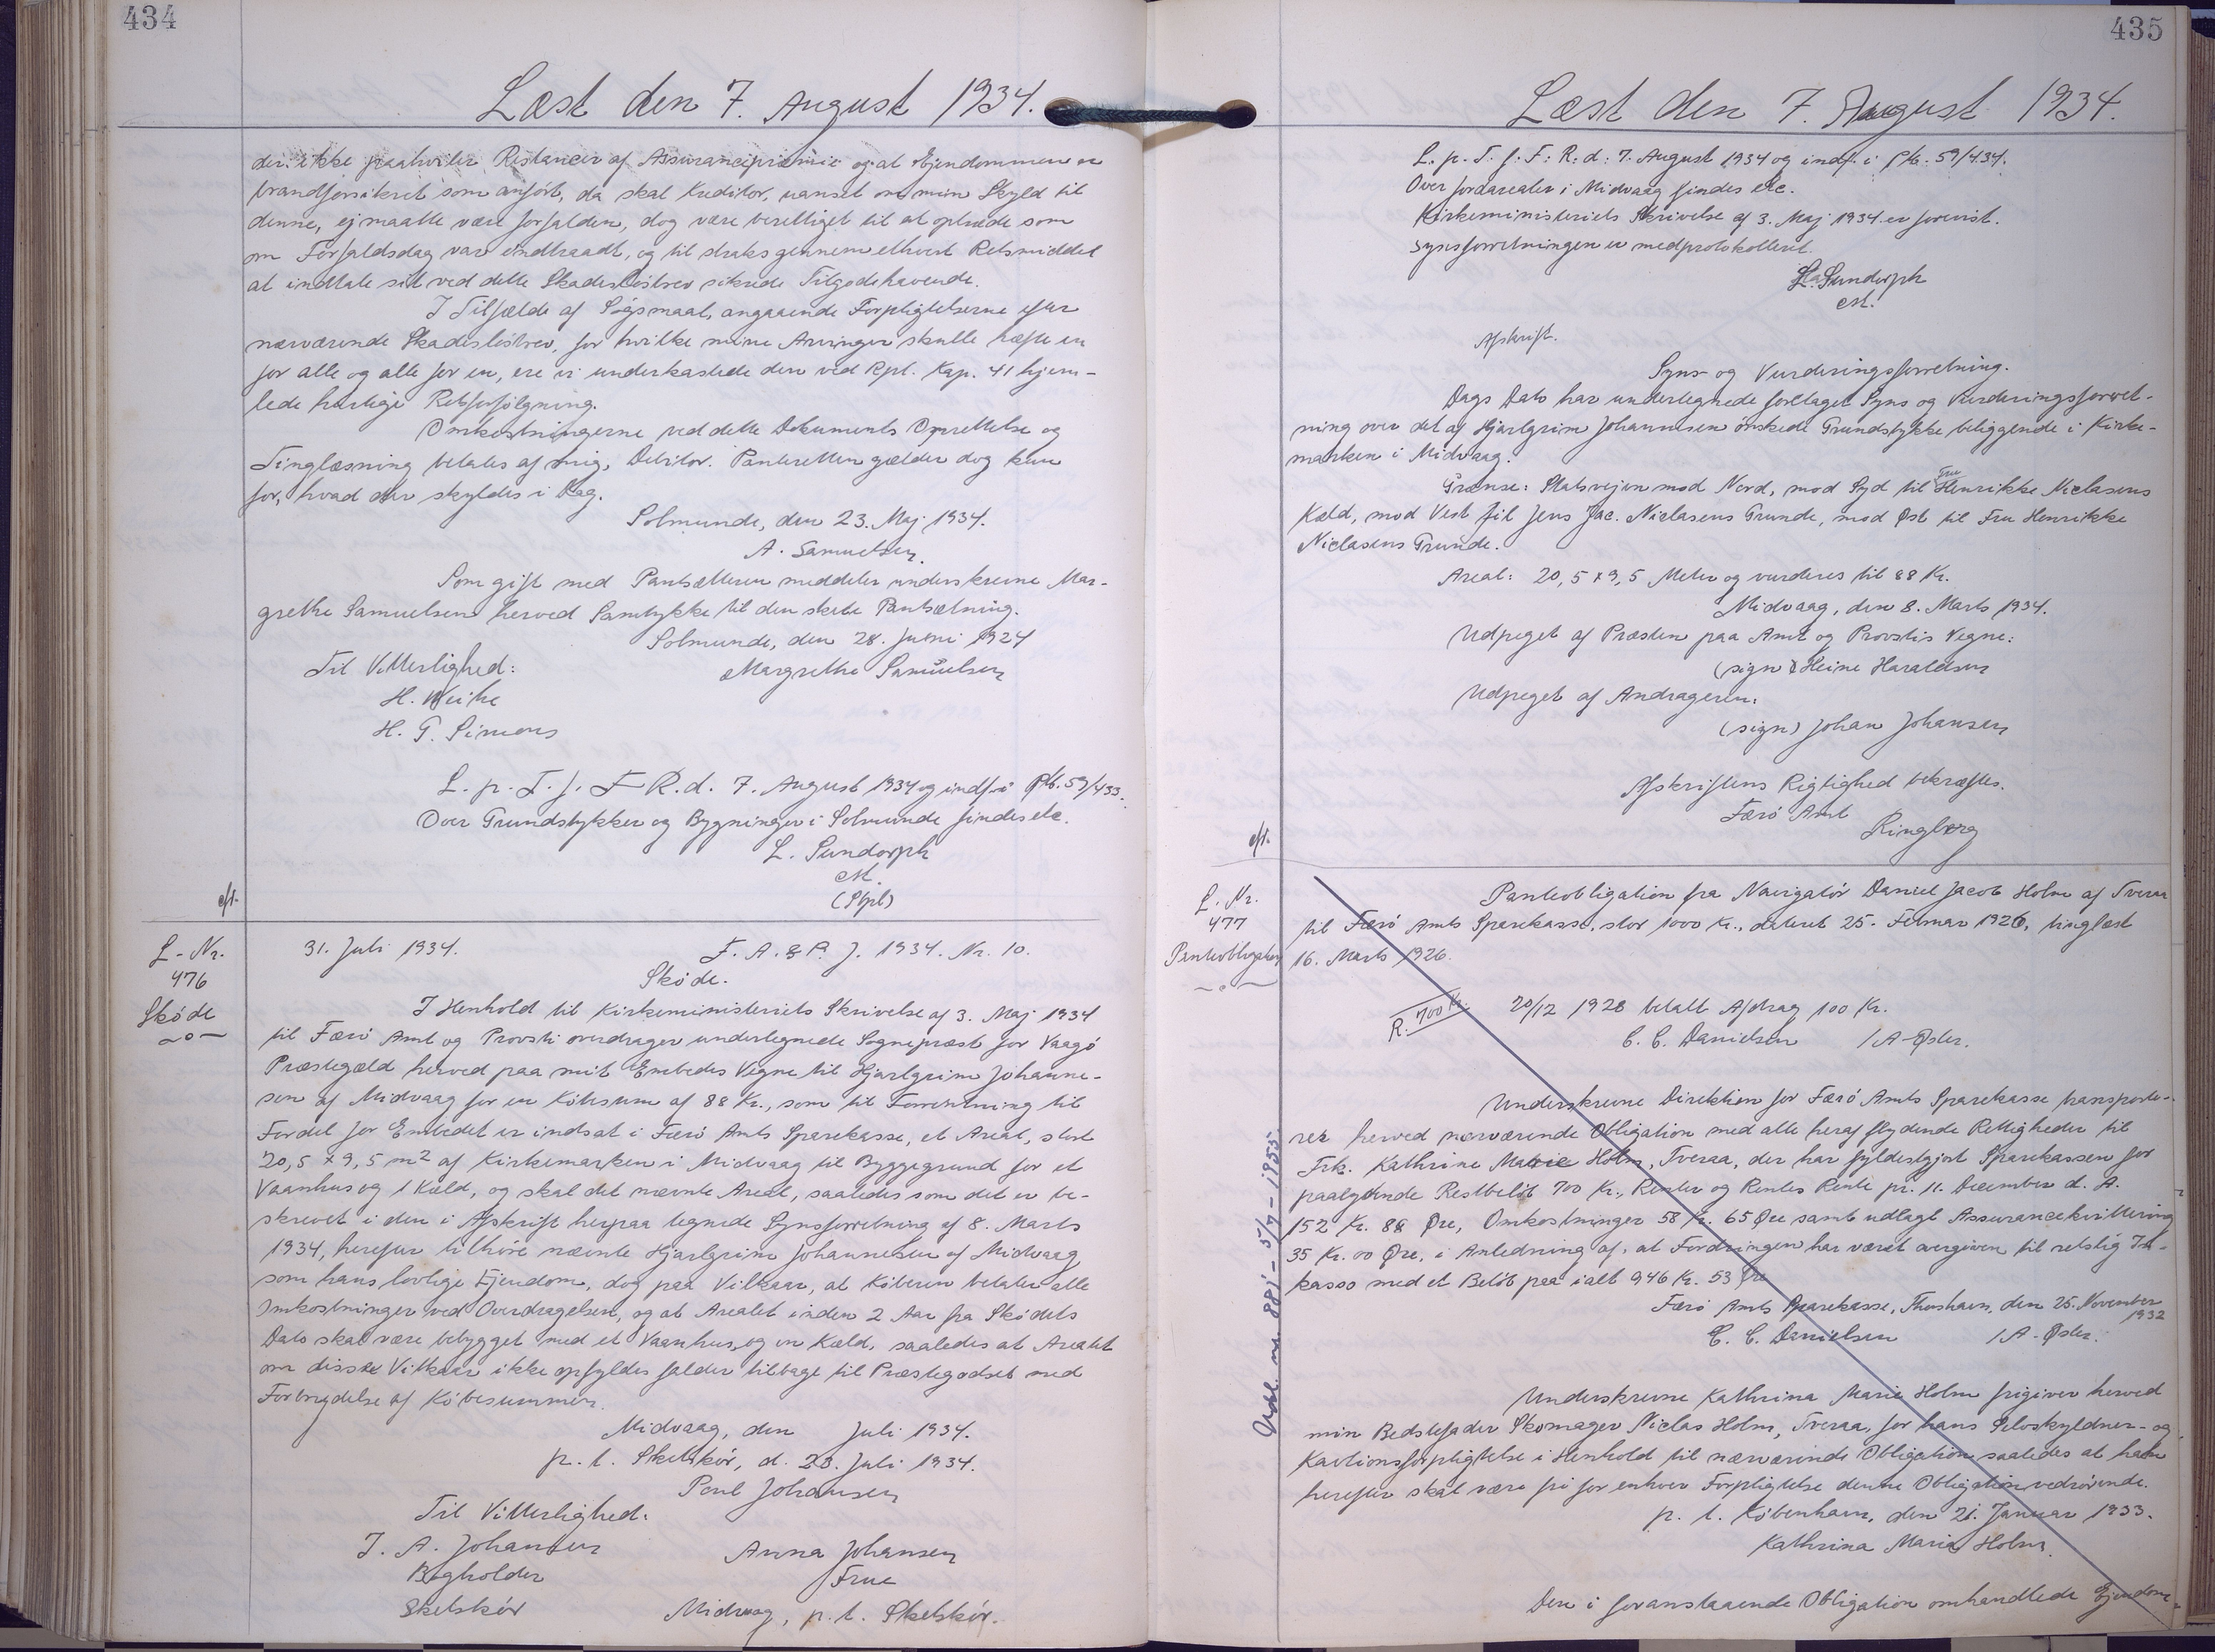 434
Læst den 7. August 1934.
der ikke paahviler Restancer af Assurancepræmie og at Ejendommen er
brandforsikret som anført, da skal Kreditor, uanset om min Skyld til
denne, ej maatte være forfalden, dog være berettiget til at optræde som
om Forfaldsdag var indtraadt, og til straks gennem ethvert Retsmiddel
at indtale sit ved dette Skadesløsbrev sikrede Tilgodehavende.
I Tilfælde af Søgsmaal, angaaende Forpligtelserne efter
nærværende Skadesløsbrev, for hvilke mine Arvinger skulle hæfte en
for alle og alle for en, ere vi underkastede den ved Rpl. Kap. 41 hjem-
lede hurtige Retsforfølgning.
Omkostningerne ved dette Dokuments Oprettelse og
Tinglæsning betales af mig, Debitor. Panteretten gælder dog kun
for, hvad der skyldes i Dag.
Solmunde, den 23. Maj 1934.
A. Samuelsen.
Som gift med Pantsætteren meddeler underskrevne Mar-
grethe Samuelsen herved Samtykke til den skete Pantsætning.
Solmunde, den 28. Juni 1924
Til Vitterlighed:
Margrethe Samuelsen
H. Weihe
H. G. Simons
L. p. T. f. F R. d. 7. August 1934 og indf. i Ptb. 59/433.
Over Grundstykker og Bygninger i Solmunde findes etc.
L. Sundorph
est.
(Sfpl)
cft.
L-Nr.
476
Skøde
31. Juli 1934. F. A. & P. J. 1934. Nr. 10.
Skøde.
I Henhold til Kirkeministeriets Skrivelse af 3. Maj 1934
til Færø Amt og Provsti overdrager undertegnede Sognepræst for Vaagø
Præstegæld herved paa mit Embedes Vegne til Hjarlgrim Johanne-
sen af Midvaag for en Købesum af 88 Kr., som til Forrentning til
Fordel for Embedet er indsat i Færø Amts Sparekasse, et Areal, stort
20,5 x 9,5 m² af Kirkemarken i Midvaag til Byggegrund for et
Vaanhus og 1 Kæld, og skal det nævnte Areal, saaledes som det er be-
skrevet i den i Afskrift herpaa tegnede Synsforretning af 8. Marts
1934, herefter tilhøre nævnte Hjarlgrim Johannesen af Midvaag
som hans lovlige Ejendom, dog paa Vilkaar, at Køberen betaler alle
Omkostninger ved Overdragelsen, og at Arealet inden 2 Aar fra Skødets
Dato skal være bebygget med et Vaanhus, og en Kæld, saaledes at Arealet
om disse Vilkaar ikke opfyldes falder tilbage til Præstegodset med
Fortrydelse af Købesummen.
Midvaag, den Juli 1934.
p. t. Skelskør, d. 23. Juli 1934.
Poul Johansen
Til Vitterlighed:
J. A. Johansen Anna Johansen
Bogholder Frue
Skelskør Midvaag, p. t. Skelskør.
435
Læst den 7. August 1934.
L. p. T. f. F. R. d. 7. August 1934 og indf. i Ptb. 59/434.
Over Jordarealer i Midvaag findes etc.
Kirkeministeriets Skrivelse af 3. Maj 1934 er forevist.
Synsforretningen er medprotokolleret
L. Sundorph
est.
Afskrift.
Syns- og Vurderingsforretning.
Dags Dato har undertegnede foretaget Syns og Vurderingsforret-
ning over det af Hjarlgrim Johannesen ønskede Grundstykke beliggende i Kirke-
marken i Midvaag.
Grænse: Statsvejen mod Nord, mod Syd til Fru Henrikke Niclasens
Kæld, mod Vest til Jens Jac. Niclasens Grunde, mod Øst til Fru Henrikke
Niclasens Grunde.
Areal: 20,5 x 9,5 Meter og vurderes til 88 Kr.
Midvaag, den 8. Marts 1934.
Udpeget af Præsten paa Amt og Provstis Vegne:
(sign) Heine Haraldsen
Udpeget af Andrageren:
(sign) Johan Johansen
Afskriftens Rigtighed bekræftes.
Færø Amt
Ringberg
cft.
L. Nr.
477
Panteobligation
Panteobligation fra Navigatør Daniel Jacob Holm af Tveraa
til Færø Amts Sparekasse, stor 1000 Kr., dateret 25. Februar 1926, tinglæst
16. Marts 1926.
R. 700 Kr.
20/12 1928 betalt Afdrag 100 Kr.
C. C. Danielsen /A-Øster.
Underskrevne Direktion for Færø Amts Sparekasse transporte-
rer herved nærværende Obligation med alle heraf flydende Rettigheder til
Frk. Kathrine Marie Holm, Tveraa, der har fyldestgjort Sparekassen for
paalydende Restbeløb 700 Kr., Renter og Rentes Rente pr. 11. December d. A.
152 Kr. 88 Øre, Omkostninger 58 Kr. 65 Øre samt udlagt Assurancekvittering
35 Kr. 00 Øre, i Anledning af, at Fordringen har været overgiven til retslig In-
kasso med et Beløb paa ialt 946 Kr. 53 Øre
Færø Amts Sparekasse, Thorshavn, den 25. November
1932
C. C. Danielsen /A-Øster.
Underskrevne Kathrina Marie Holm frigiver herved
min Bedstefader Skomager Niclas Holm, Tveraa, for hans Selvskyldner- og
Kautionsforpligtelse i Henhold til nærværende Obligation saaledes at han
herefter skal være fri for enhver Forpligtelse denne Obligation vedrørende.
p. t. København, den 21. Januar 1933.
Kathrina Marie Holm.
Den i foranstaaende Obligation omhandlede Ejendom-